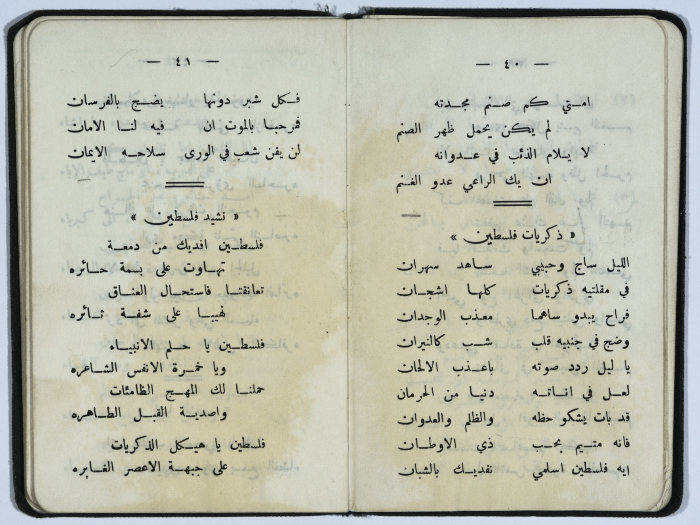 — ٤٠ —
امتي كم صنم مجدته
لم يكن يحمل طهر الصنم
لا يلام الذئب في عدوانه
ان يك الراعي عدو الغنم
« ذكريات فلسطين »
الليل ساج وحبيبي ساهد سهران
في مقلتيه ذكريات كلها اشجان
فراح يبدو ساهما معذب الوجدان
وضج في جنبيه قلب شب كالنيران
يا ليل ردد صوته باعذب الالحان
لعل في اناته دنيا من الحرمان
قد بات يشكو حظه والظلم والعدوان
فانه متيم بحب ذي الاوطان
ايه فلسطين اسلمي نفديك بالشبان
— ٤١ —
فكل شبر دونها يضج بالفرسان
فمرحبا بالموت ان فيه لنا الامان
لن يفن شعب في الورى سلاحه الايمان
« نشيد فلسطين »
فلسطين افديك من دمعة
تهاوت على بسمة حائره
تعانقتا فاستحال العناق
لهيبا على شفة ثائره
فلسطين يا حلم الانبياء
ويا خمرة الانفس الشاعره
حملنا لك المهج الظامئات
واصدية القبل الطاهره
فلسطين يا هيكل الذكريات
على جبهة الاعصر الغابره